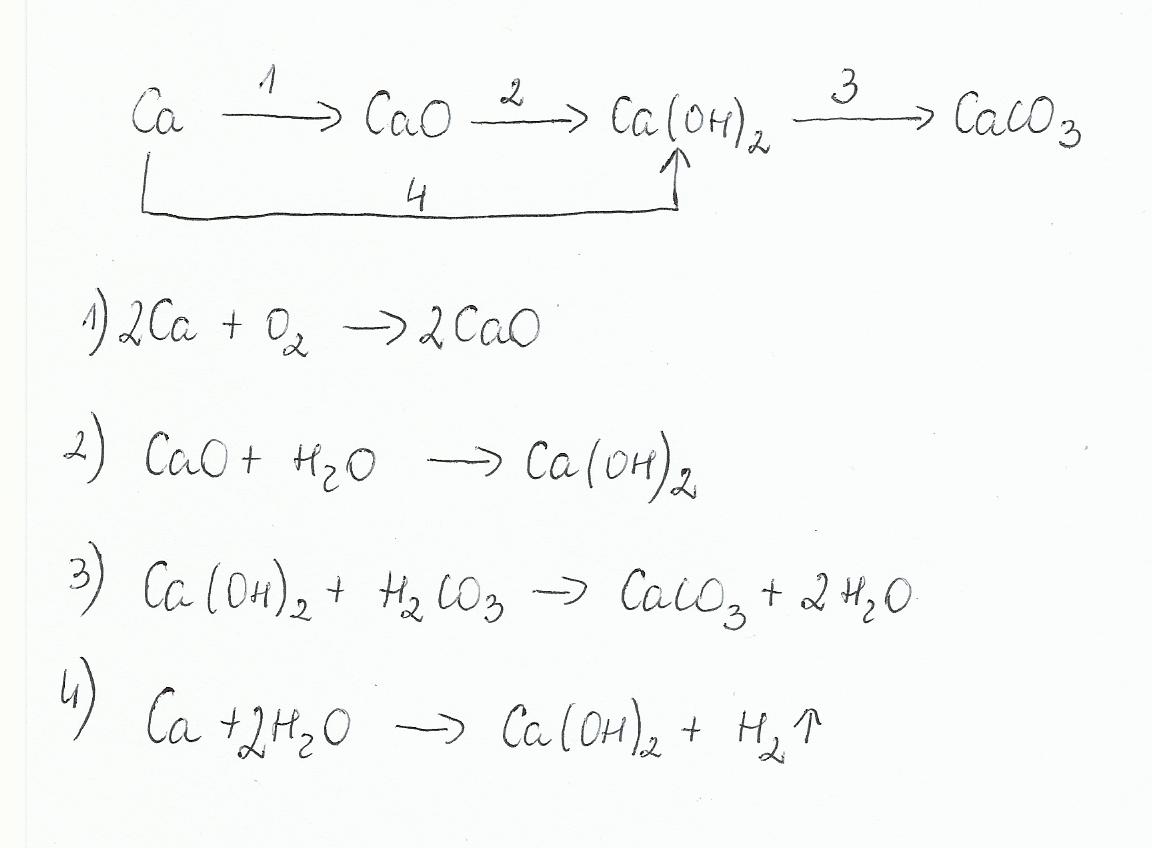 Ca 1→ CaO 2→ Ca(OH)₂ 3→ CaCO₃
4
1) 2Ca + O₂ → 2CaO
2) CaO + H₂O → Ca(OH)₂
3) Ca(OH)₂ + H₂CO₃ → CaCO₃ + 2H₂O
4) Ca + 2H₂O → Ca(OH)₂ + H₂↑